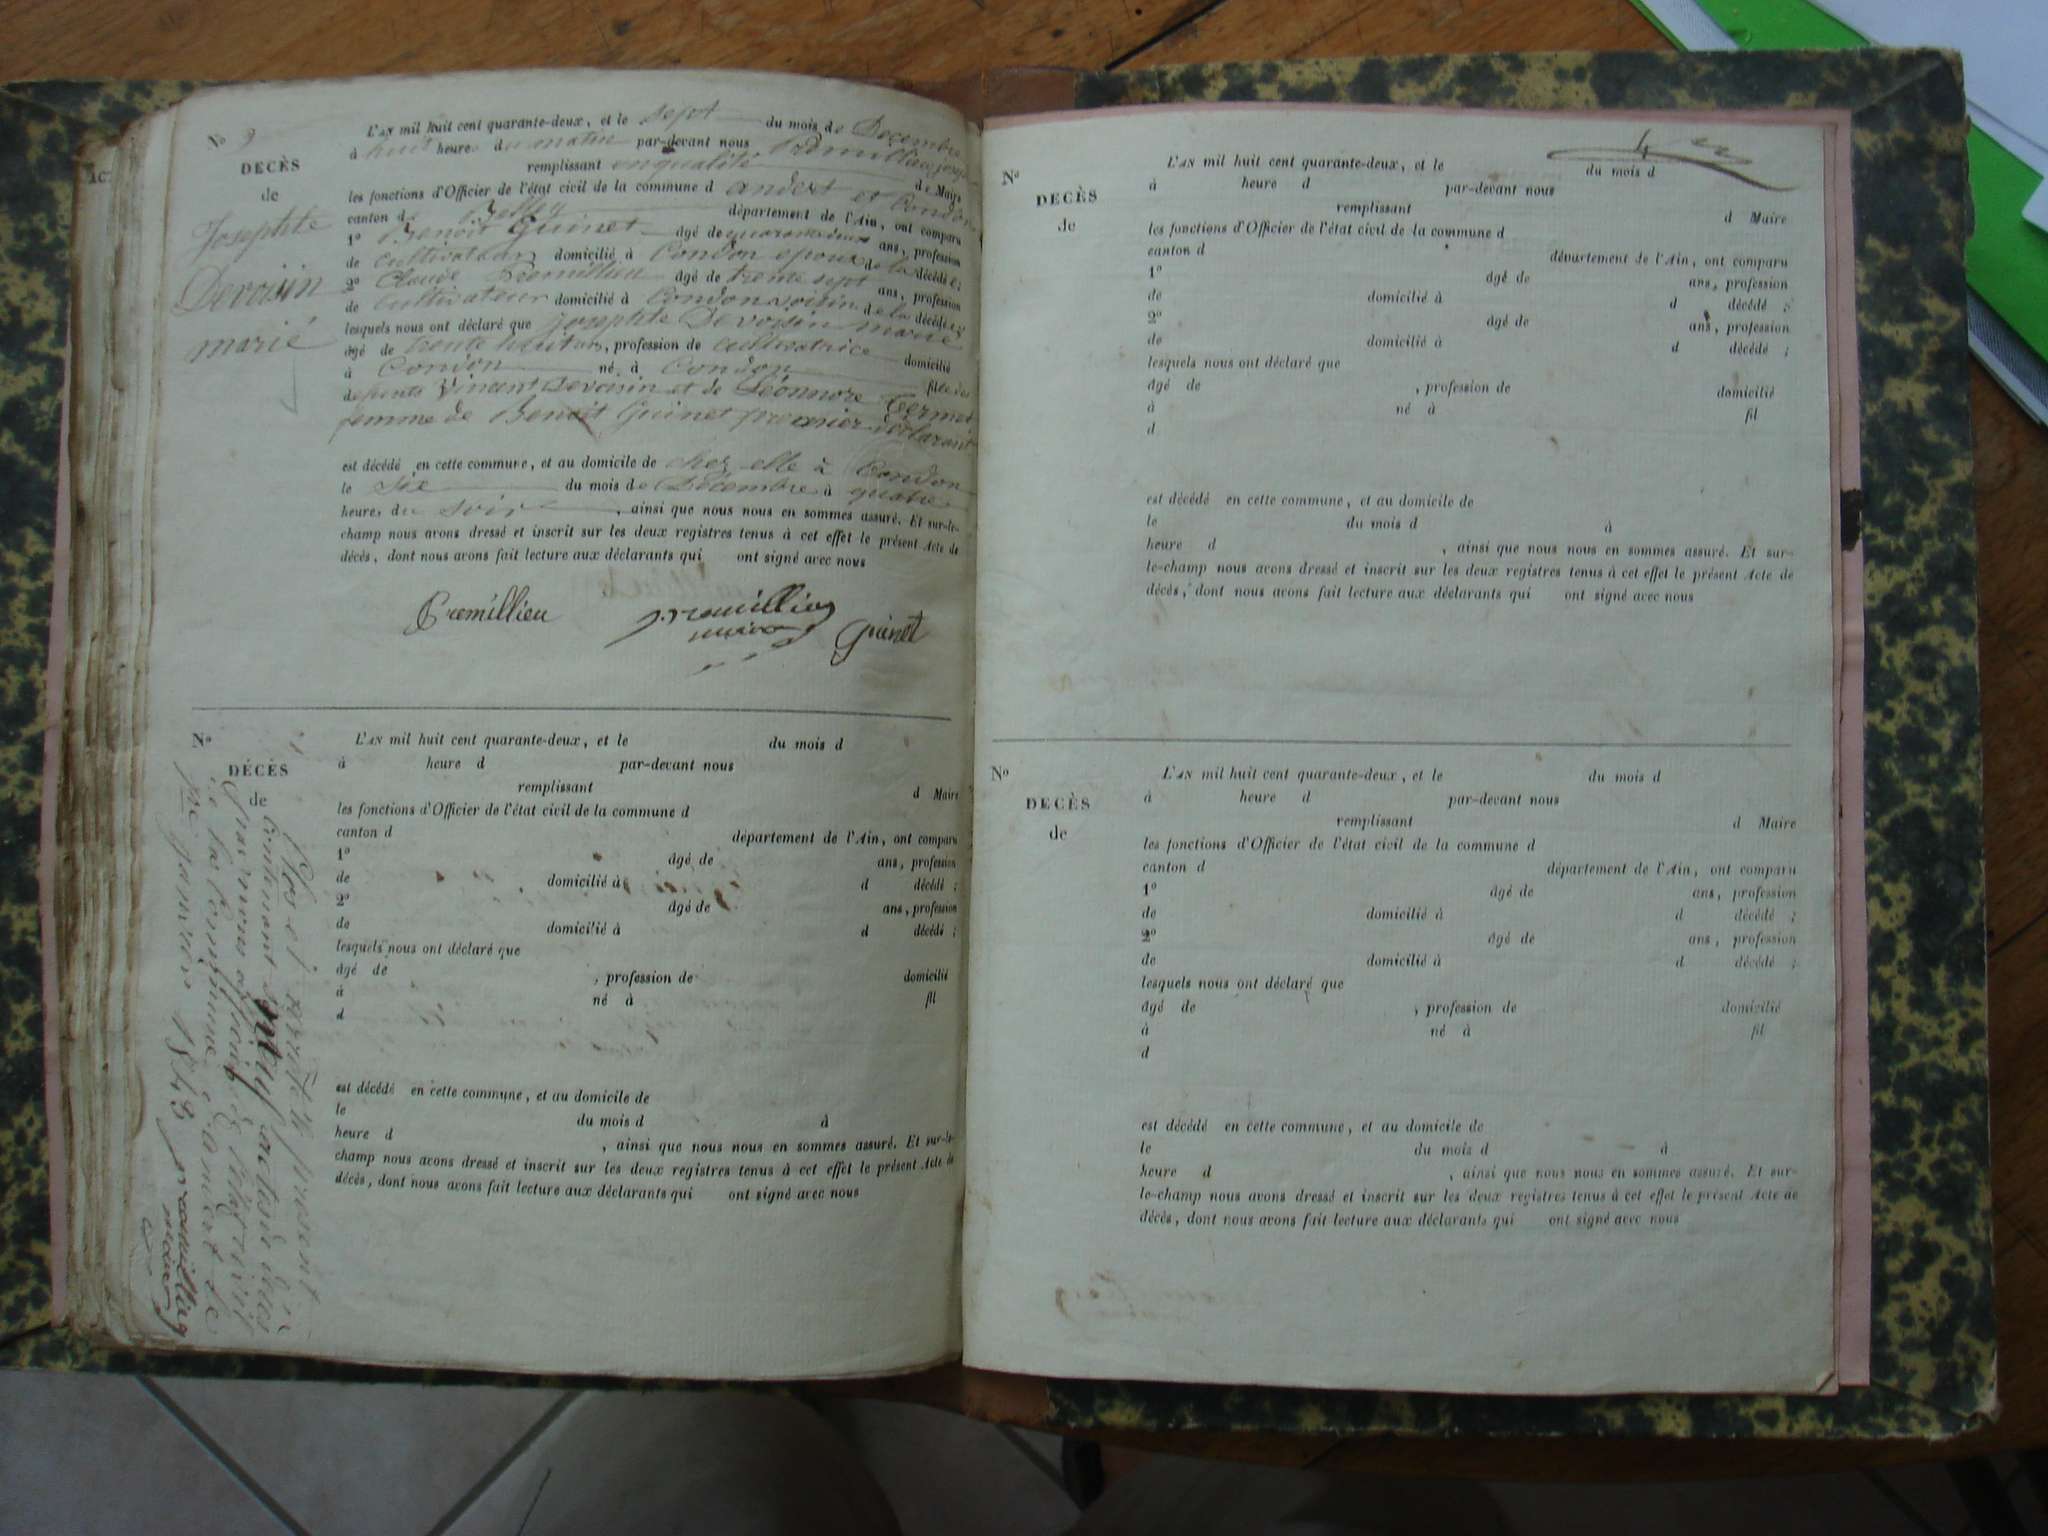 N.° 9
DÉCÈS
de
Josephte
Devoisin
marié
L'AN mil huit cent quarante-deux, et le sept du mois de Decembre
à huit heures du matin par-devant nous Premillieu joseph
remplissant en qualité de Maire
les fonctions d'Officier de l'état civil de la commune d andert et Condon
canton de Belley département de l'Ain, ont comparu
1° Benoit Guinet âgé de quarante deux ans, profession
de cultivateur domicilié à Condon epoux de la décédée;
2° Claude Premillieu âgé de trente sept ans, profession
de cultivateur domicilié à Condon voisin de la décédée;
lesquels nous ont déclaré que josephte Devoisin marié
âgé de trente huit ans, profession de cultivatrice domicilié
à Condon né à Condon fille des
defunts Vincent Devoisin et de Léonnore Termet
femme de Benoit Guinet premier déclarant
est décédé en cette commune, et au domicile de chez elle à Condon
le six du mois de Décembre à quatre
heures du soire, ainsi que nous nous en sommes assuré. Et sur-le-
champ nous avons dressé et inscrit sur les deux registres tenus à cet effet le présent Acte de
décès, dont nous avons fait lecture aux déclarants qui ont signé avec nous
Premillieu premillieu maire Guinet
N.°
DÉCÈS
de
Clos et arrêté le présent
contenant neuf actes de décès
par nous officier de l'état civil
de la Commune d'andert le
1843 premillieu
maire
L'AN mil huit cent quarante-deux, et le du mois d
à heure d par-devant nous
remplissant d Maire
les fonctions d'Officier de l'état civil de la commune d
canton d département de l'Ain, ont comparu
1° âgé de ans, profession
de domicilié à d décédé ;
2° âgé de ans, profession
de domicilié à d décédé ;
lesquels nous ont déclaré que
âgé de , profession de domicilié
à né à fil
d
est décédé en cette commune, et au domicile de
le du mois d à
heure d , ainsi que nous nous en sommes assuré. Et sur-le-
champ nous avons dressé et inscrit sur les deux registres tenus à cet effet le présent Acte de
décès, dont nous avons fait lecture aux déclarants qui ont signé avec nous
4
N°
DÉCÈS
de
L'AN mil huit cent quarante-deux, et le du mois d
à heure d par-devant nous
remplissant d Maire
les fonctions d'Officier de l'état civil de la commune d
canton d département de l'Ain, ont comparu
1° âgé de ans, profession
de domicilié à d décédé ;
2° âgé de ans, profession
de domicilié à d décédé ;
lesquels nous ont déclaré que
âgé de , profession de domicilié
à né à fil
d
est décédé en cette commune, et au domicile de
le du mois d à
heure d , ainsi que nous nous en sommes assuré. Et sur-
le-champ nous avons dressé et inscrit sur les deux registres tenus à cet effet le présent Acte de
décès, dont nous avons fait lecture aux déclarants qui ont signé avec nous
N°
DÉCÈS
de
L'AN mil huit cent quarante-deux, et le du mois d
à heure d par-devant nous
remplissant d Maire
les fonctions d'Officier de l'état civil de la commune d
canton d département de l'Ain, ont comparu
1° âgé de ans, profession
de domicilié à d décédé ;
2° âgé de ans, profession
de domicilié à d décédé ;
lesquels nous ont déclaré que
âgé de , profession de domicilié
à né à fil
d
est décédé en cette commune, et au domicile de
le du mois d à
heure d , ainsi que nous nous en sommes assuré. Et sur-
le-champ nous avons dressé et inscrit sur les deux registres tenus à cet effet le présent Acte de
décès, dont nous avons fait lecture aux déclarants qui ont signé avec nous